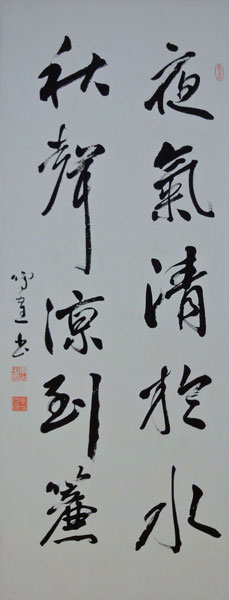 夜氣清於水
秋聲涼到簾